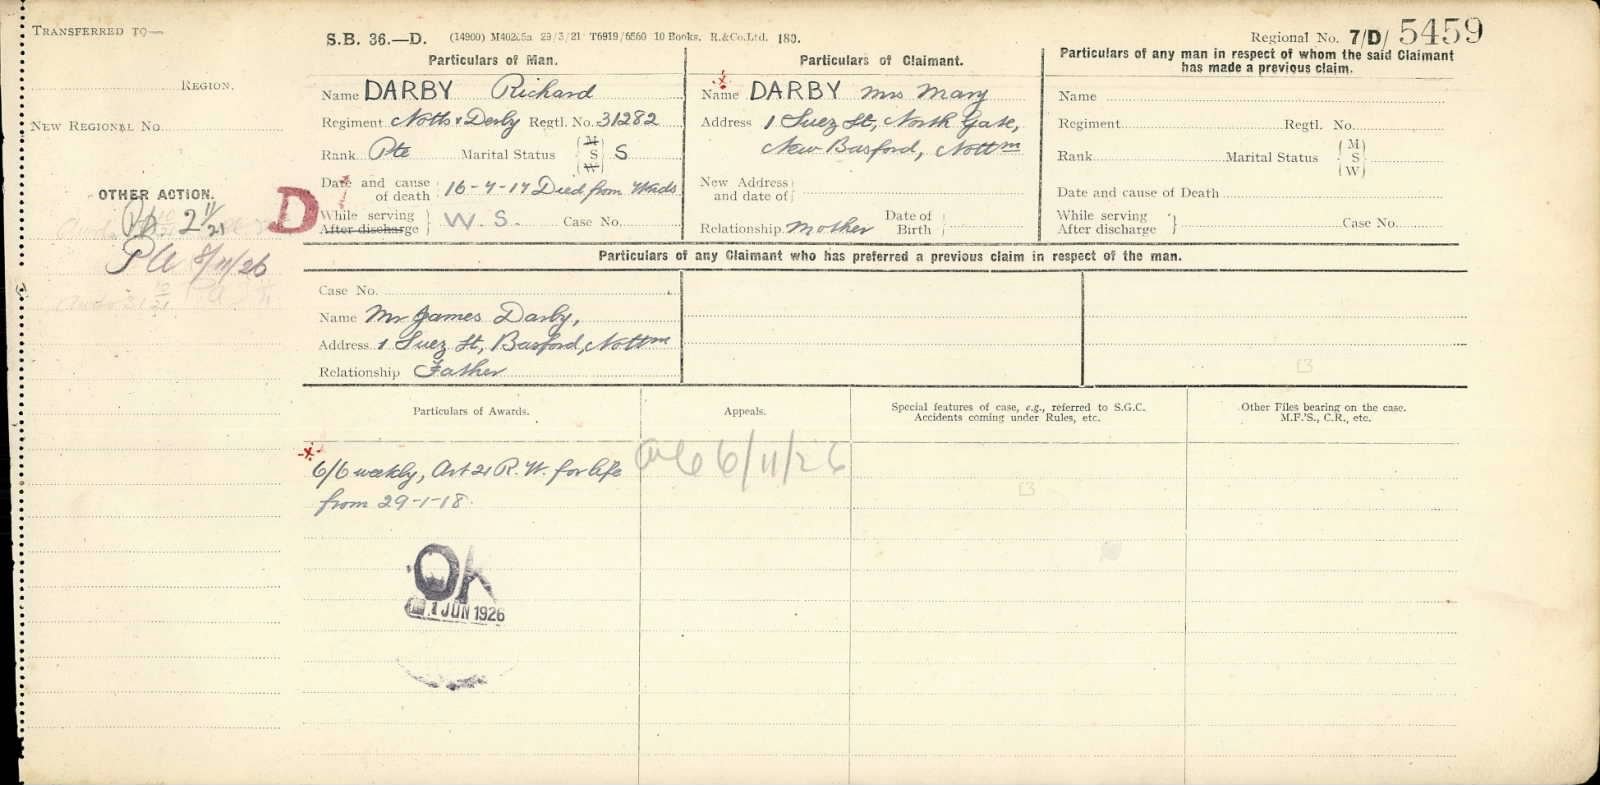 TRANSFERRED TO—
REGION.
NEW REGIONAL No.
OTHER ACTION.
2/11/21
PA 8/11/26
D
S.B. 36.—D. 29/3/21 T6919/6560 10 Books. R.&Co.Ltd. 180.
Regional No. 7/D/ 5459
Particulars of Man.
Name DARBY Richard
Regiment Notts & Derby Regtl. No. 31282
Rank Pte Marital Status (M S W) S
Date and cause of death } 16-7-17 Died from Wnds
While serving
After discharge } W.S. Case No.
Particulars of Claimant.
Name DARBY Mrs Mary
Address 1 Suez St, North Gate,
New Basford, Nottm
New Address and date of
Relationship Mother Date of Birth
Particulars of any man in respect of whom the said Claimant
has made a previous claim.
Name
Regiment Regtl. No.
Rank Marital Status (M S W)
Date and cause of Death
While serving
After discharge } Case No.
Particulars of any Claimant who has preferred a previous claim in respect of the man.
Case No.
Name Mr James Darby,
Address 1 Suez St, Basford, Nottm
Relationship Father
Particulars of Awards.
Appeals.
Special features of case, e.g., referred to S.G.C.
Accidents coming under Rules, etc.
Other Files bearing on the case.
M.F.'S., C.R., etc.
6/6 weekly, Art 21 R.W. for life
from 29-1-18.
6/11/26
OK
1 JUN 1926